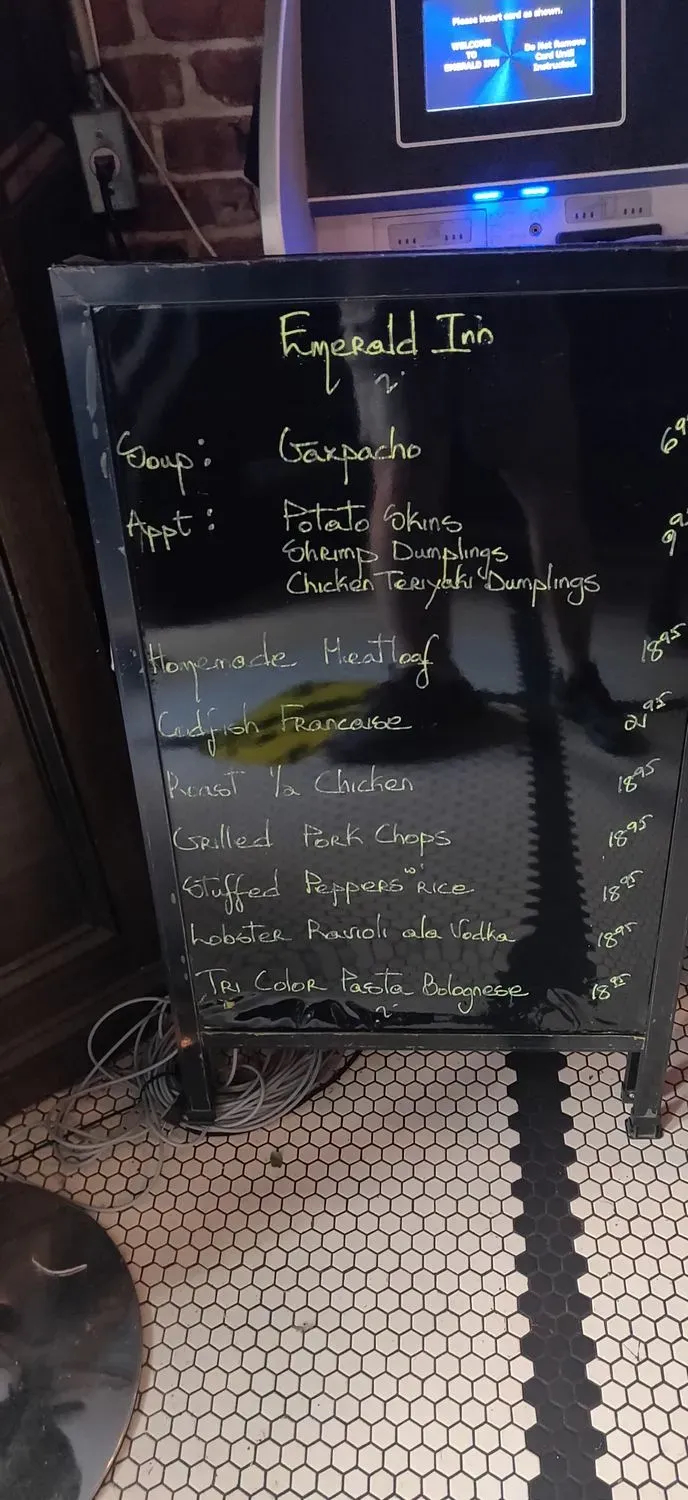 Please insert card as shown.
WELCOME
TO
EMERALD INN
Do Not Remove
Card Until
Instructed.
Emerald Inn
Soup: Gaxpacho
Appt: Potato Skins
Shrimp Dumplings
Chicken Teriyaki Dumplings
Homemade Meatloaf 18 95
Codfish Francaise 21 95
Roast 1/2 Chicken 18 95
Grilled Pork Chops 18 95
Stuffed Peppers w/ Rice 18 95
Lobster Ravioli ala Vodka 18 95
Tri Color Pasta Bolognese 18 95